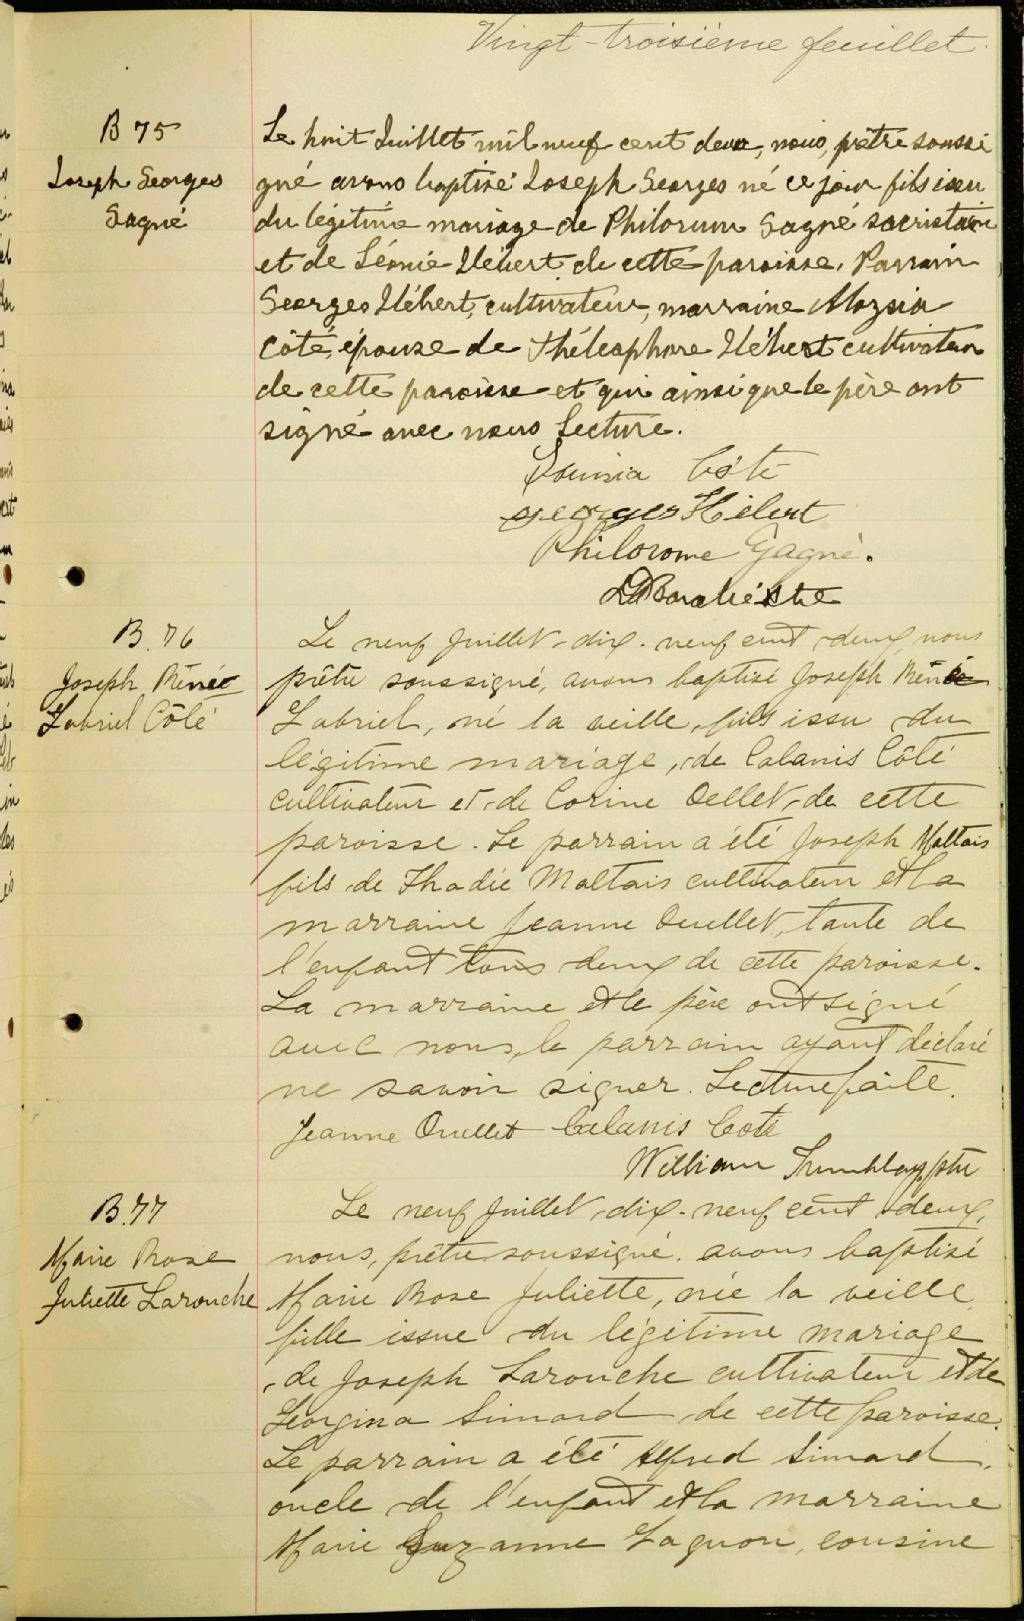 Vingt-troisième feuillet.
B 75
Joseph Georges
Gagné
Le huit Juillet mil neuf cent deux, nous, prêtre soussi
gné avons baptisé Joseph Georges né ce jour fils issu
du légitime mariage de Philorum Gagné sacristain
et de Léonie Hébert de cette paroisse. Parrain
Georges Hébert, cultivateur, marraine
Côté, épouse de Thélesphore Hébert cultivateur
de cette paroisse et qui ainsi que le père ont
signé avec nous lecture.
Côté
Georges Hébert
Philorome Gagné.
B. 76
Joseph Réné
Gabriel Côté
Le neuf Juillet dix-neuf cent deux, nous
prêtre soussigné, avons baptisé Joseph Réné
Gabriel, né la veille, fils issu du
légitime mariage, de Calanis Côté
cultivateur et de Corine Oellet, de cette
paroisse. Le parrain a été Joseph Maltais
fils de Thadie Maltais cultivateur et la
marraine Jeanne Ouellet, tante de
l'enfant tous deux de cette paroisse.
La marraine et le père ont signé
avec nous, le parrain ayant déclaré
ne savoir signer. Lecture faite.
Jeanne Ouellet Calanis Coté
William Tremblay, ptre
B. 77
Marie Rose
Juliette Larouche
Le neuf Juillet dix-neuf cent deux,
nous, prêtre soussigné. avons baptisé
Marie Rose Juliette, née la veille,
fille issue du légitime mariage
de Joseph Larouche cultivateur et de
Georgina Simard de cette paroisse.
Le parrain a été Alfred Simard,
oncle de l'enfant et la marraine
Marie Suzanne Gagnon, cousine